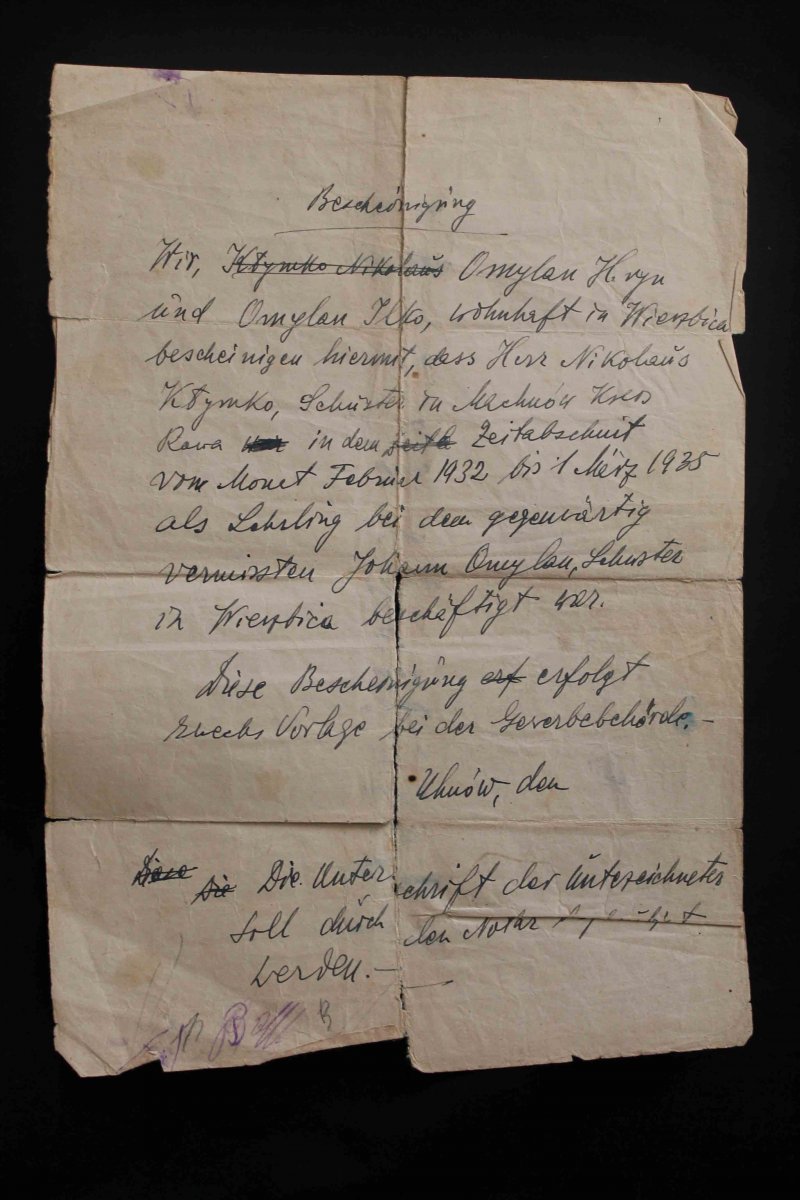 Bescheinigung
Wir, Kłymko Nikolaus Omylan Hryn
und Omylan Ilko, wohnhaft in Wierzbica
bescheinigen hiermit, dass Herr Nikolaus
Kłymko, Schuster in Machnów Kreis
Rawa in dem Zeitabschnit
vom Monat Februar 1932 bis 1 März 1935
als Lehrling bei dem gegenwärtig
vermissten Johann Omylan, Schuster
in Wierzbica beschäftigt war.
Diese Bescheinigung erf erfolgt
zwecks Vorlage bei der Gewerbebehörde.-
Uhnów, den
Diese Die Die Unterschrift der Unterzeichneter
soll durch den Notar
werden.-